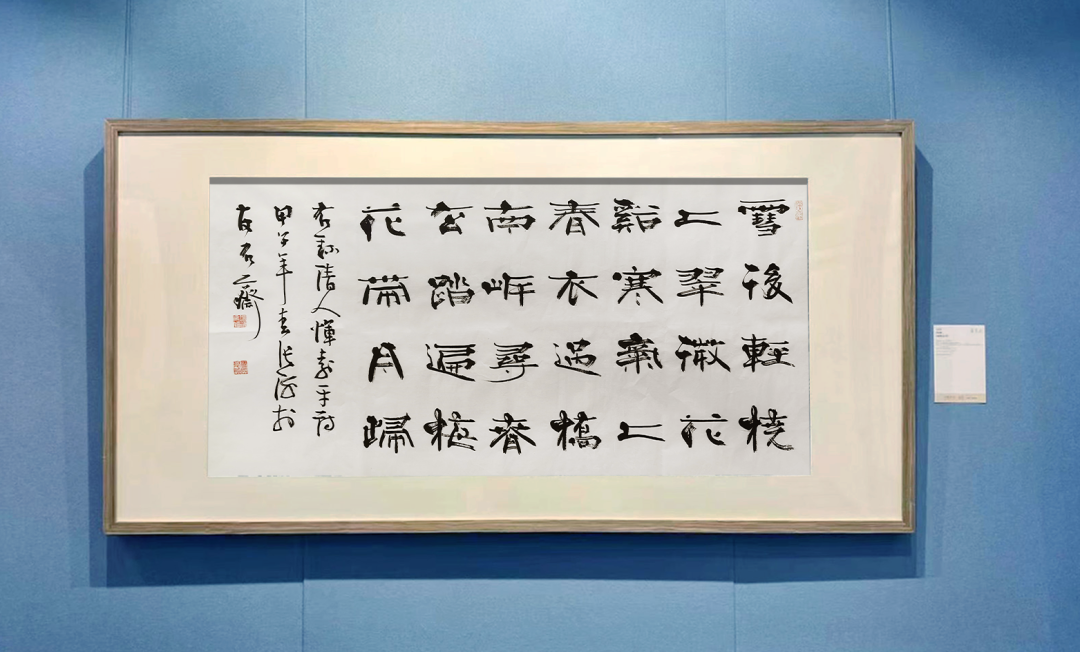 雪後輕橈
上翠微花
谿寒氣上
春衣過橋
南岸尋春
去踏遍梅
花帶月歸
右録清人惲壽平詩
甲年春張於
友石齋